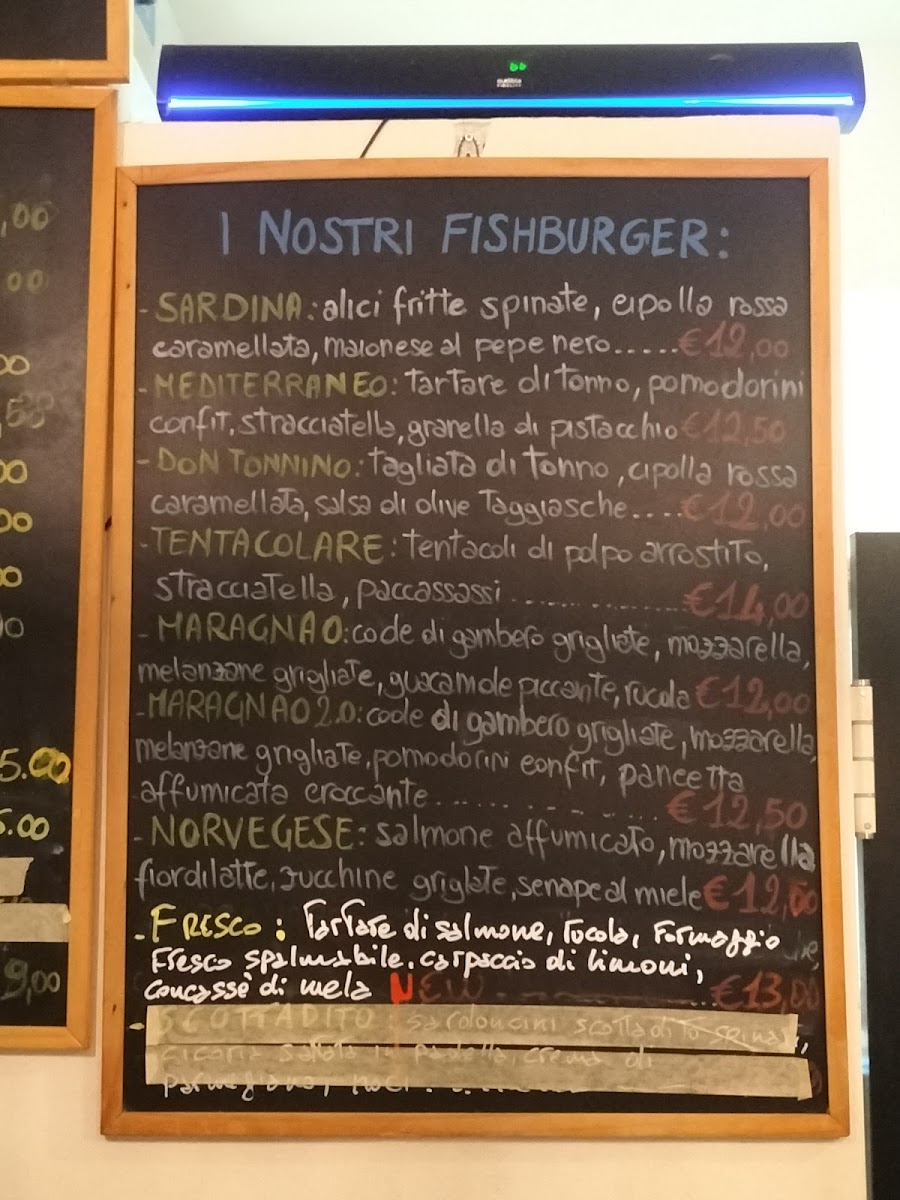 I NOSTRI FISHBURGER:
- SARDINA: alici fritte spinate, cipolla rossa
caramellata, maionese al pepe nero.....€12,00
- MEDITERRANEO: tartare di tonno, pomodorini
confit, stracciatella, granella di pistacchio €12,50
- DON TONNINO: tagliata di tonno, cipolla rossa
caramellata, salsa di olive Taggiasche....€12,00
- TENTACOLARE: tentacoli di polpo arrostito,
stracciatella, paccassassi ................€14,00
- MARAGNAO: code di gambero grigliate, mozzarella,
melanzane grigliate, guacamole piccante, rucola €12,00
- MARAGNAO 2.0: code di gambero grigliate, mozzarella
melanzane grigliate, pomodorini confit, pancetta
affumicata croccante.......... €12,50
- NORVEGESE: salmone affumicato, mozzarella
fiordilatte, zucchine grigliate, senape al miele €12,00
- FRESCO: Tartare di salmone, rucola, Formaggio
Fresco spalmabile, carpaccio di limoni,
concassè di mela NEW ..................€13,00
- SCOTTADITO: sardoncini scottadito spinati,
cicoria saltata in padella, crema di
parmigiano,
,00
,00
00
,50
00
00
00
00
5.00
5.00
9,00